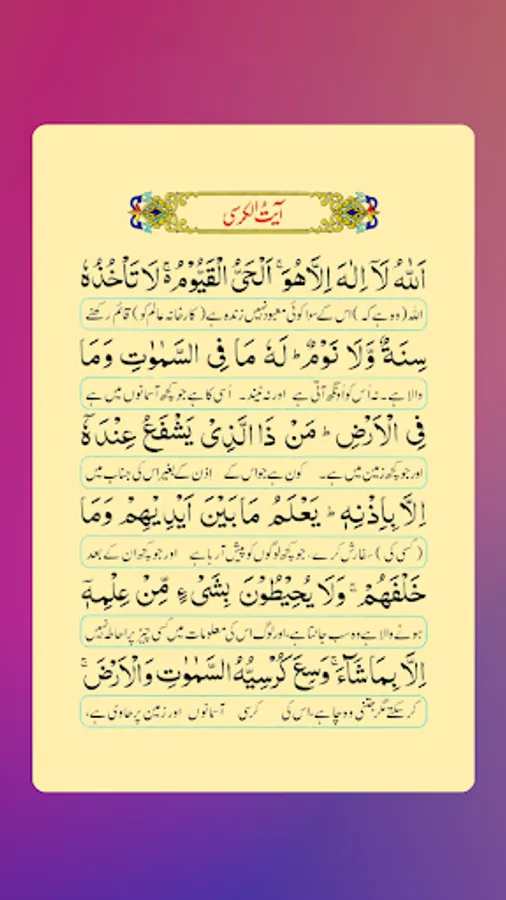 آیتُ الکرسی
اَللّٰهُ لَآ اِلٰهَ اِلَّا هُوَ ۚ اَلْحَیُّ الْقَیُّوْمُ ۚ لَا تَاْخُذُهٗ
اللہ (وہ ہے کہ) اس کے سوا کوئی معبود نہیں زندہ ہے (کارخانہ عالم کو) قائم رکھنے
سِنَةٌ وَّلَا نَوْمٌ ؕ لَهٗ مَا فِی السَّمٰوٰتِ وَمَا
والا ہے۔ نہ اُس کو اُونگھ آتی ہے اور نہ نیند۔ اُسی کا ہے جو کچھ آسمانوں میں ہے
فِی الْاَرْضِ ؕ مَنْ ذَا الَّذِیْ یَشْفَعُ عِنْدَهٗۤ
اور جو کچھ زمین میں ہے۔ کون ہے جو اس کے اِذن کے بغیر اس کی جناب میں
اِلَّا بِاِذْنِهٖ ؕ یَعْلَمُ مَا بَیْنَ اَیْدِیْهِمْ وَمَا
(کسی کی) سفارش کرے، جو کچھ لوگوں کو پیش آ رہا ہے اور جو کچھ ان کے بعد
خَلْفَهُمْ ۚ وَلَا یُحِیْطُوْنَ بِشَیْءٍ مِّنْ عِلْمِهٖۤ
ہونے والا ہے وہ سب جانتا ہے، اور لوگ اس کی معلومات میں کسی چیز پر احاطہ نہیں
اِلَّا بِمَا شَآءَ ۚ وَسِعَ کُرْسِیُّهُ السَّمٰوٰتِ وَالْاَرْضَ ۚ
کر سکتے مگر جتنی وہ چاہے، اس کی کرسی آسمانوں اور زمین پر حاوی ہے،